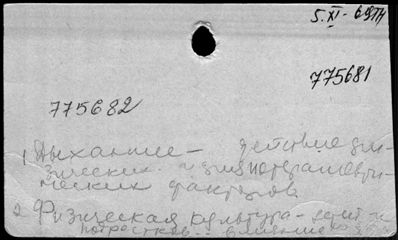 5.XI-69
775681
775682
1 Дыхание - действие фи-
зических и физиотерапевти-
ческих факторов
2 Физическая культура - детей и
подростков - влияние